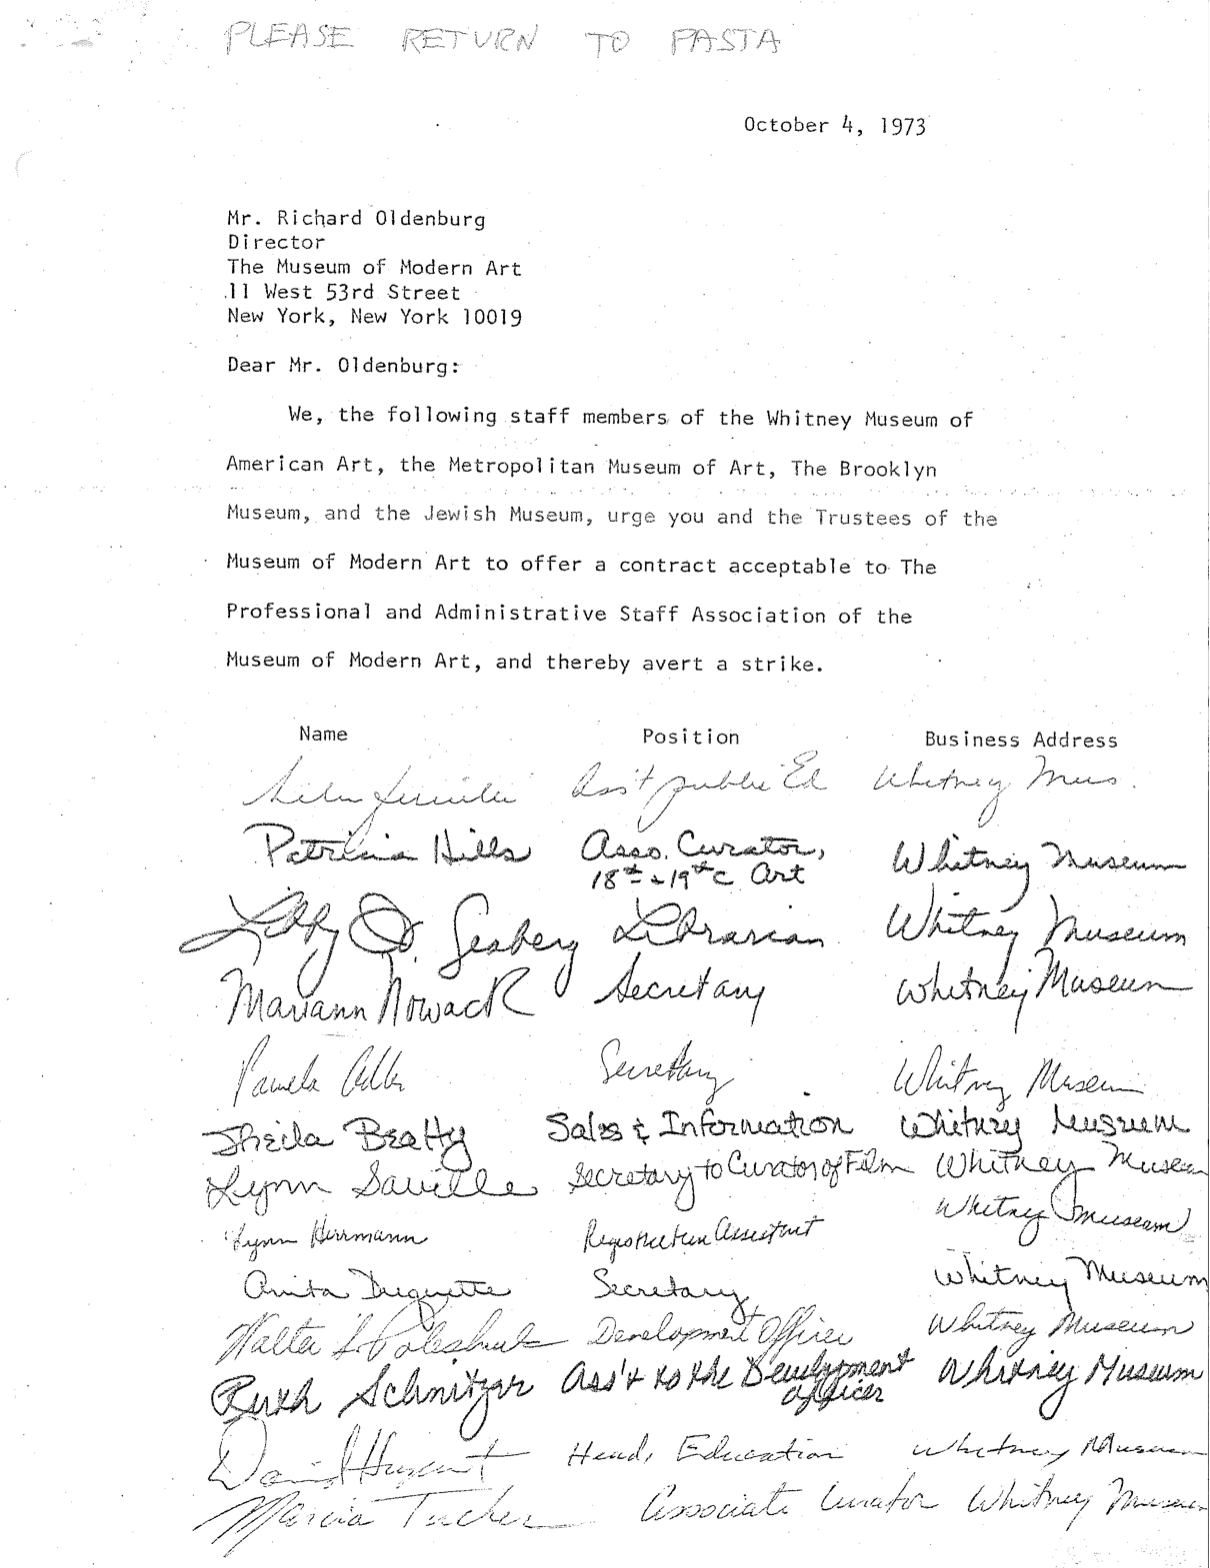 PLEASE RETURN TO PASTA
October 4, 1973
Mr. Richard Oldenburg
Director
The Museum of Modern Art
11 West 53rd Street
New York, New York 10019
Dear Mr. Oldenburg:
We, the following staff members of the Whitney Museum of
American Art, the Metropolitan Museum of Art, The Brooklyn
Museum, and the Jewish Museum, urge you and the Trustees of the
Museum of Modern Art to offer a contract acceptable to The
Professional and Administrative Staff Association of the
Museum of Modern Art, and thereby avert a strike.
Name Position Business Address
Ass't public Ed Whitney Mus.
Patricia Hills Asso. Curator, Whitney Museum
18th & 19th C Art
Libby W. Seaberg Librarian Whitney Museum
Mariann Nowack Secretary Whitney Museum
Pamela Adler Secretary Whitney Museum
Sheila Beatty Sales & Information Whitney Museum
Lynn Saville Secretary to Curator of Film Whitney Museum
Lynn Herrmann Assistant Whitney Museum
Anita Duquette Secretary Whitney Museum
Development Officer Whitney Museum
Ruth Schnitzer Ass't to the Development Whitney Museum
Officer
David Head, Education Whitney Museum
Marcia Tucker Associate Curator Whitney Museum